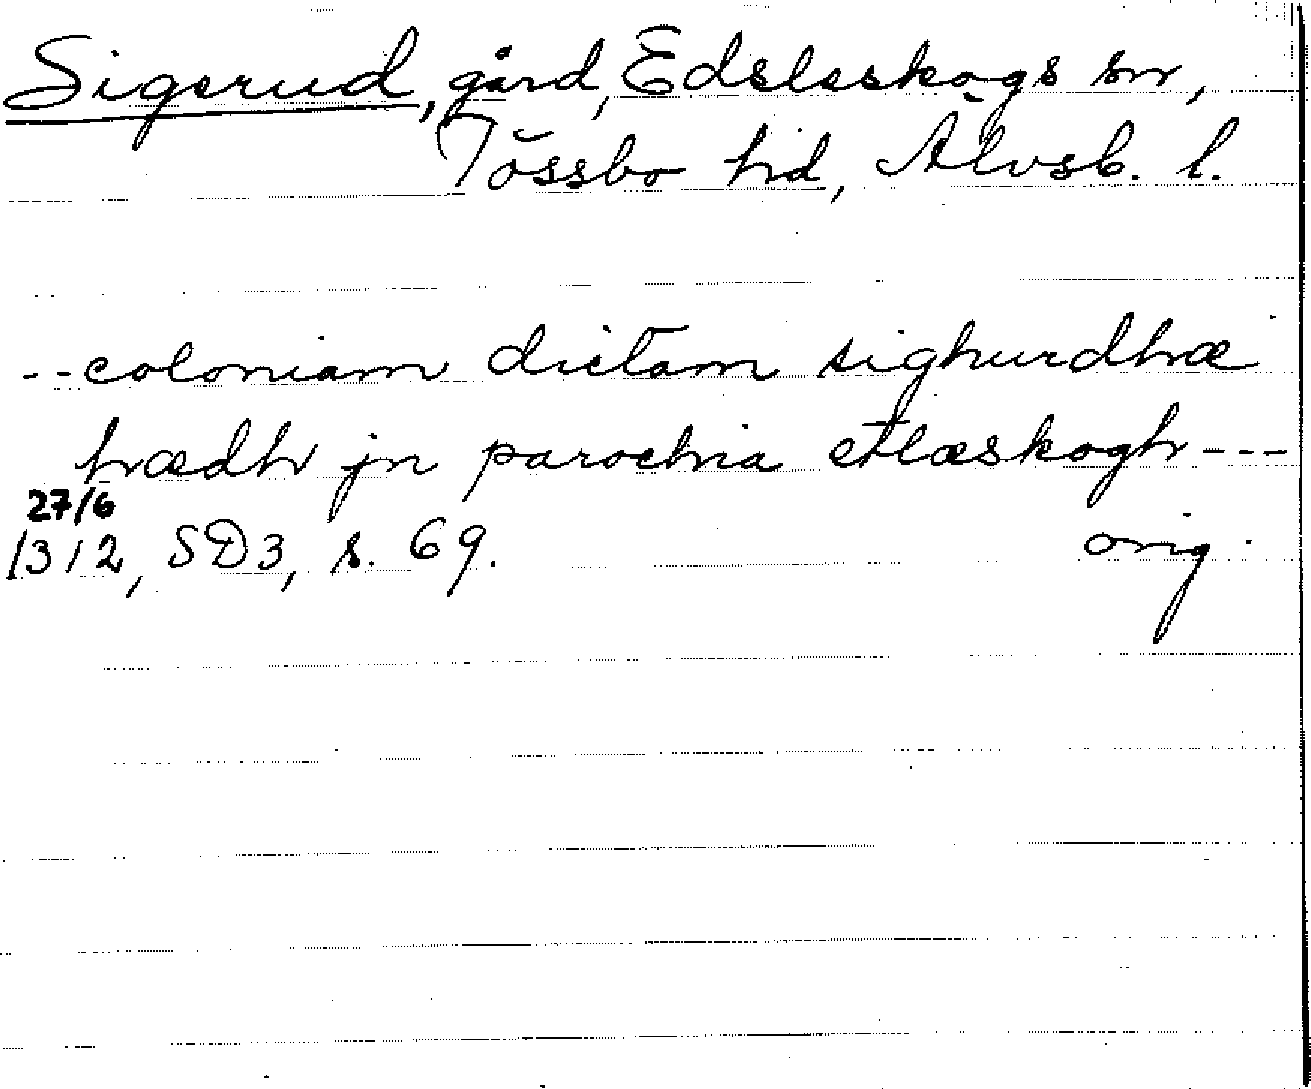 Sigerud, gård, Edsleskogs sn,
Tössbo hd, Älvsb. l.
--coloniam dictam sighurdhæ
hrædh jn parochia etlæskogh---
27/6
1312, SD3, s. 69. orig.